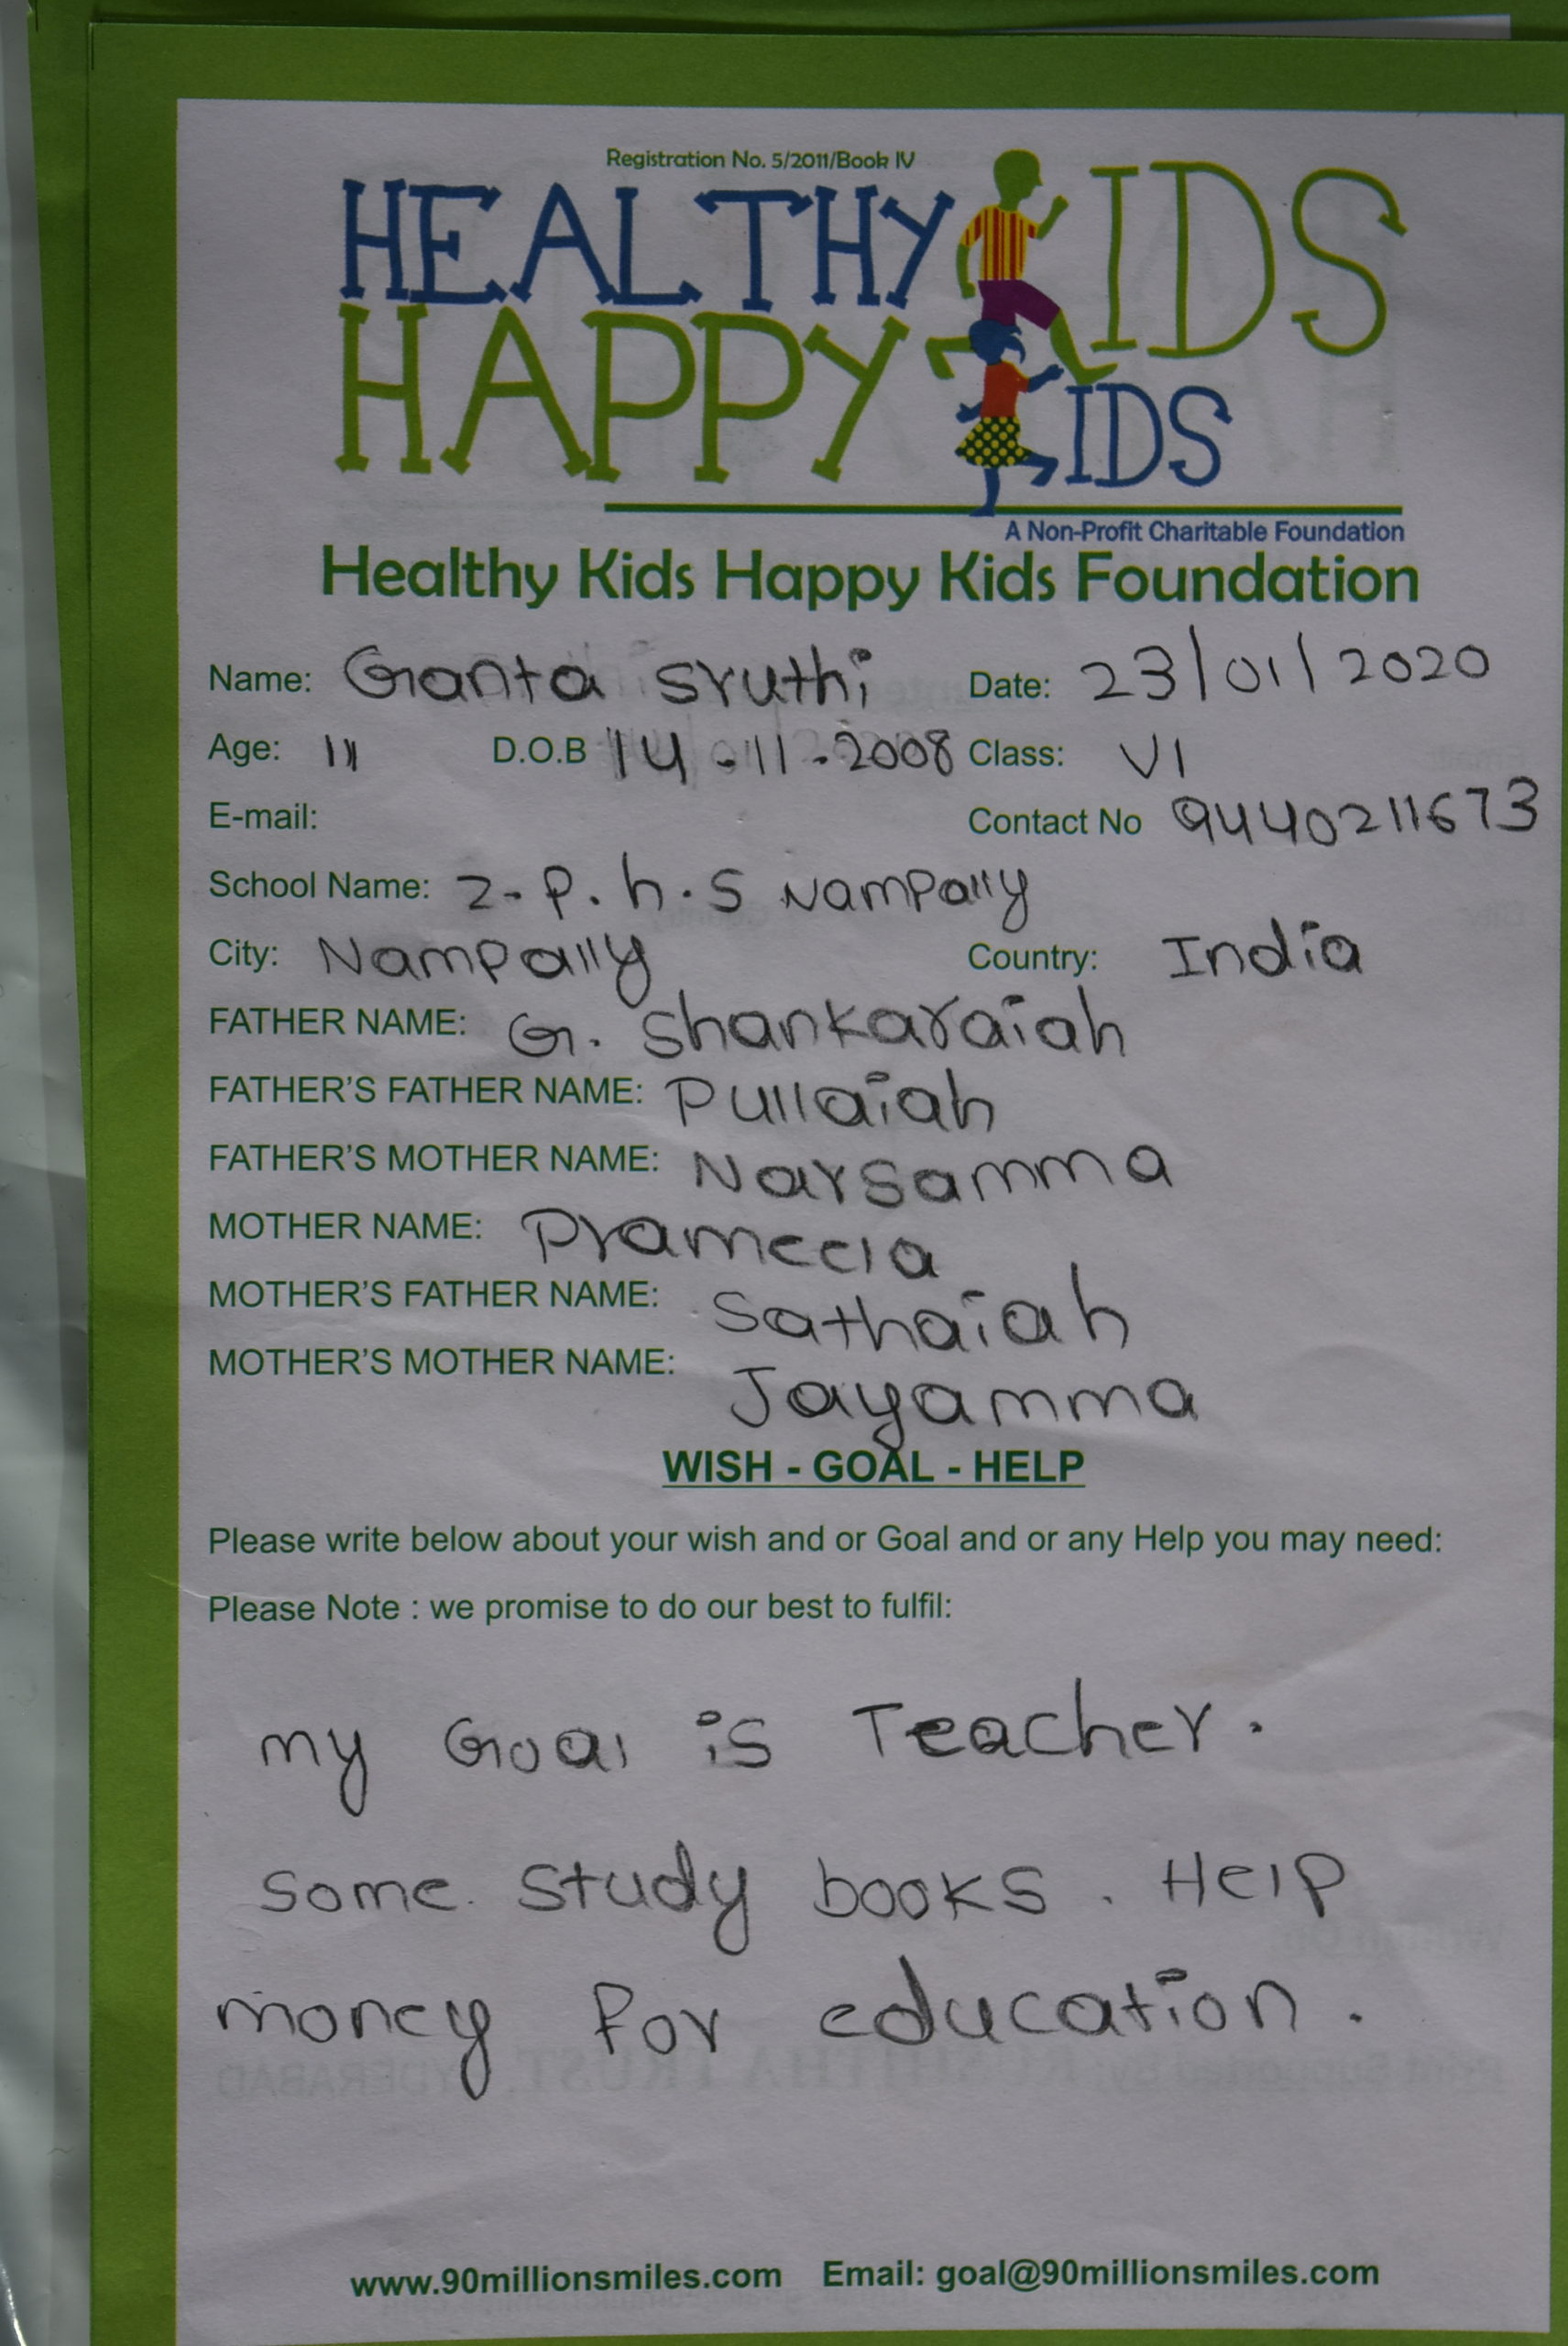 Registration No. 5/2011/Book IV
HEALTHY KIDS
HAPPY KIDS
A Non-Profit Charitable Foundation
Healthy Kids Happy Kids Foundation
Name: Ganta Sruthi Date: 23/01/2020
Age: 11 D.O.B 14-11-2008 Class: VI
E-mail: Contact No 9440211673
School Name: Z-P.h.S Nampally
City: Nampally Country: India
FATHER NAME: G. Shankaraiah
FATHER'S FATHER NAME: Pullaiah
FATHER'S MOTHER NAME: Narsamma
MOTHER NAME: Prameela
MOTHER'S FATHER NAME: Sathaiah
MOTHER'S MOTHER NAME: Jayamma
WISH - GOAL - HELP
Please write below about your wish and or Goal and or any Help you may need:
Please Note : we promise to do our best to fulfil:
my Goal is Teacher.
Some study books. Help
money for education.
www.90millionsmiles.com Email: goal@90millionsmiles.com